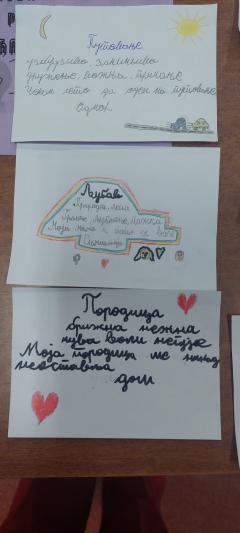 Путовање
узбудљиво, занимљиво
дружење, вожња, причање
Чекам лето да одем на путовање
Одмор
Љубав
Природа, лепа
Грљење, љубљење, пажња
Моја мама и тата се воле
Симпатија
Породица
брижна нежна
чува воли негује
Моја породица ме никад
не оставља
дом